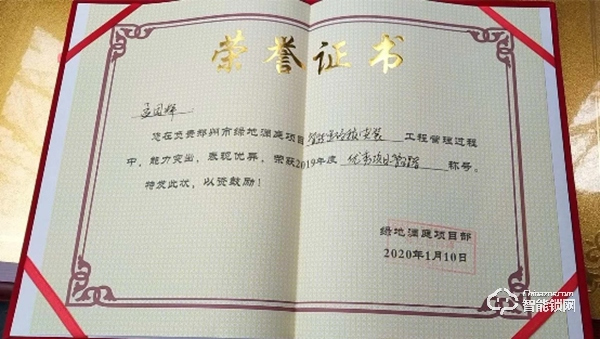 荣誉证书
孟国辉：
您在负责郑州市绿地澜庭项目智能门锁安装工程管理过程
中，能力突出，表现优异，荣获2019年度优秀项目经理称号。
特发此状，以资鼓励！
绿地澜庭项目部
2020年1月10日
Chinazns.com
智能锁网